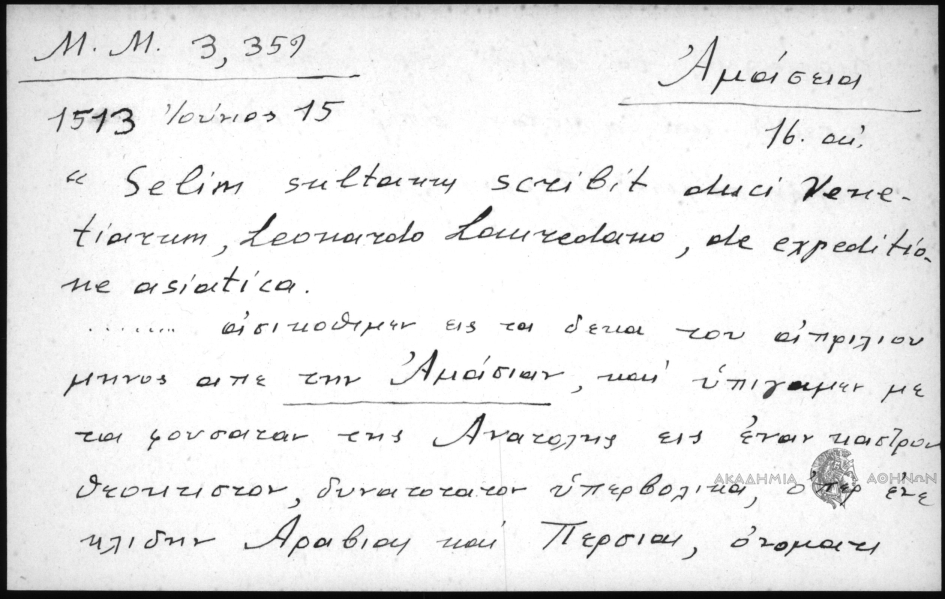 M. M. 3, 359
Ἀμάσεια
1513 Ἰούνιος 15
16. αἰ.
“ Selim sultanus scribit duci Vene-
tiarum, Leonardo Lauredano, de expeditio-
ne asiatica.
......... ἀσικοθιμεν εις τα δεκα του ἀπριλιου
μηνος απε την Ἀμάσιαν, και ὑπιγαμεν με
τα φουσαταν της Ανατολης εις ἐναν καστρον
θεοκτιστον, δυνατοτατον ὑπερβολικα, ὁπερ ἐνε
κλιδην Αραβιας και Περσιας, ὀνοματι
ΑΚΑΔΗΜΙΑ ΑΘΗΝΩΝ